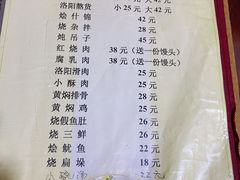 洛阳熬货 小25元 大42元
烩什锦 42元
烧杂拌 28元
炖吊子 45元
红烧肉 38元（送一份馒头）
腐乳肉 38元（送一份馒头）
洛阳滑肉 25元
小酥肉 25元
黄焖排骨 28元
黄焖鸡 25元
烧假鱼肚 26元
烧三鲜 26元
烩鱿鱼 22元
烧扁垛 18元
小 22元